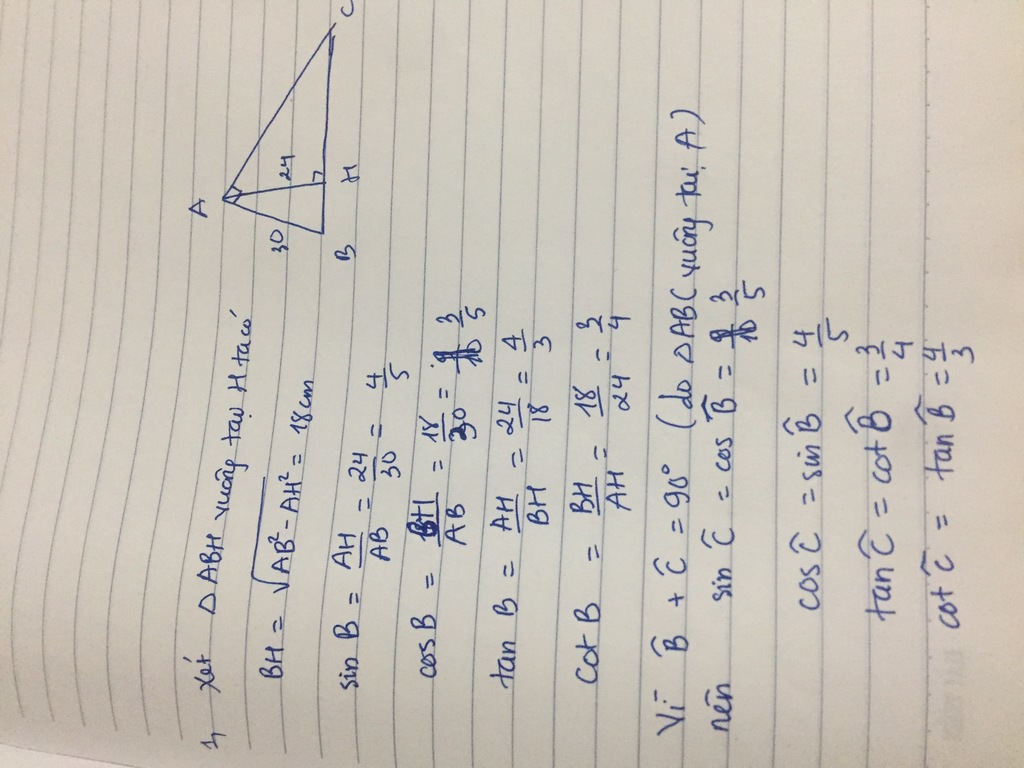 A
30
24
B
H
C
1, Xét ΔABH vuông tại H ta có
BH = √AB² - AH² = 18cm
sin B = AH/AB = 24/30 = 4/5
cos B = BH/AB = 18/30 = 3/5
tan B = AH/BH = 24/18 = 4/3
cot B = BH/AH = 18/24 = 3/4
Vì B̂ + Ĉ = 90° (do ΔABC vuông tại A)
nên sin Ĉ = cos B̂ = 3/5
cos Ĉ = sin B̂ = 4/5
tan Ĉ = cot B̂ = 3/4
cot Ĉ = tan B̂ = 4/3